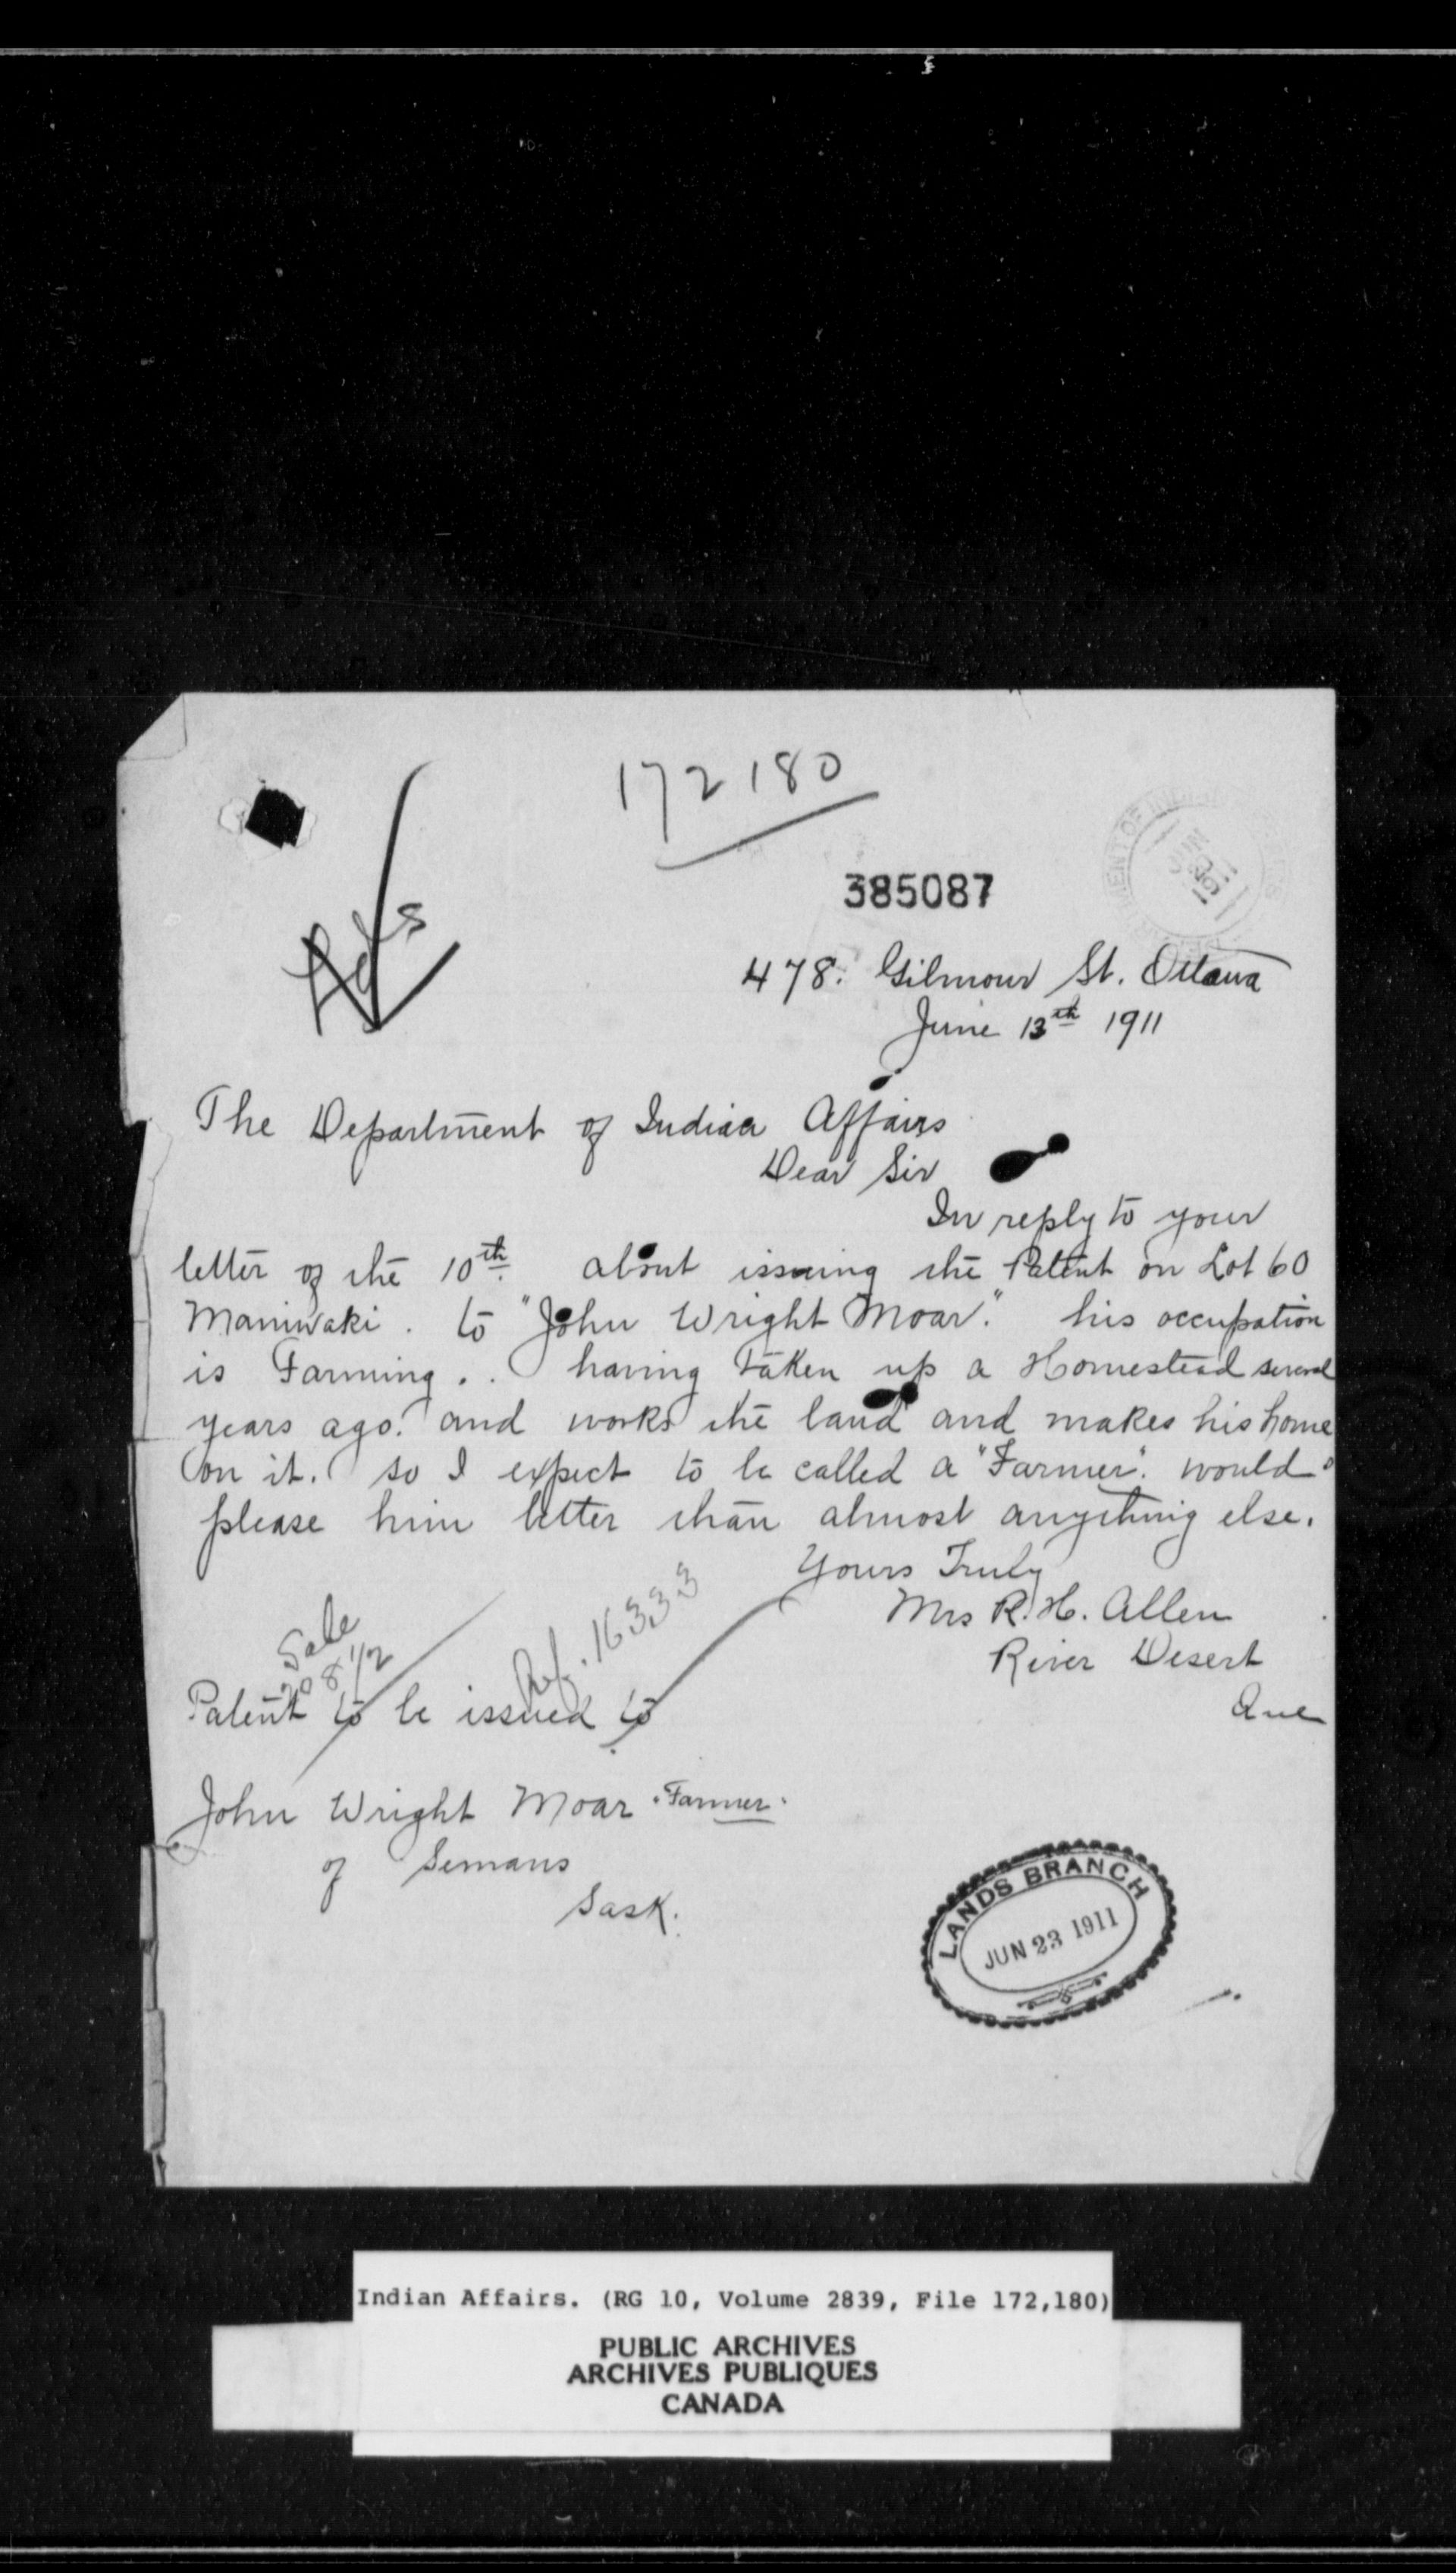 172180
385087
JUN 1911
478. Gilmour St. Ottawa
June 13th 1911
The Department of Indian Affairs
Dear Sir
In reply to your
letter of the 10th. about issuing the Patent on Lot 60
Maniwaki. to "John Wright Moar." his occupation
is Farming.. having taken up a Homestead several
years ago. and works the land and makes his home
on it. so I expect to be called a "Farmer". would
please him better than almost anything else.
Yours Truly
Mrs R. H. Allen
River Desert
Que
Sale
208 1/2
Ref. 16333
Patent to be issued to
John Wright Moar "Farmer"
of Semans
Sask.
LANDS BRANCH
JUN 23 1911
Indian Affairs. (RG 10, Volume 2839, File 172,180)
PUBLIC ARCHIVES
ARCHIVES PUBLIQUES
CANADA